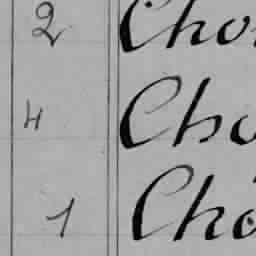 2 Cho
4 Cho
1 Cho